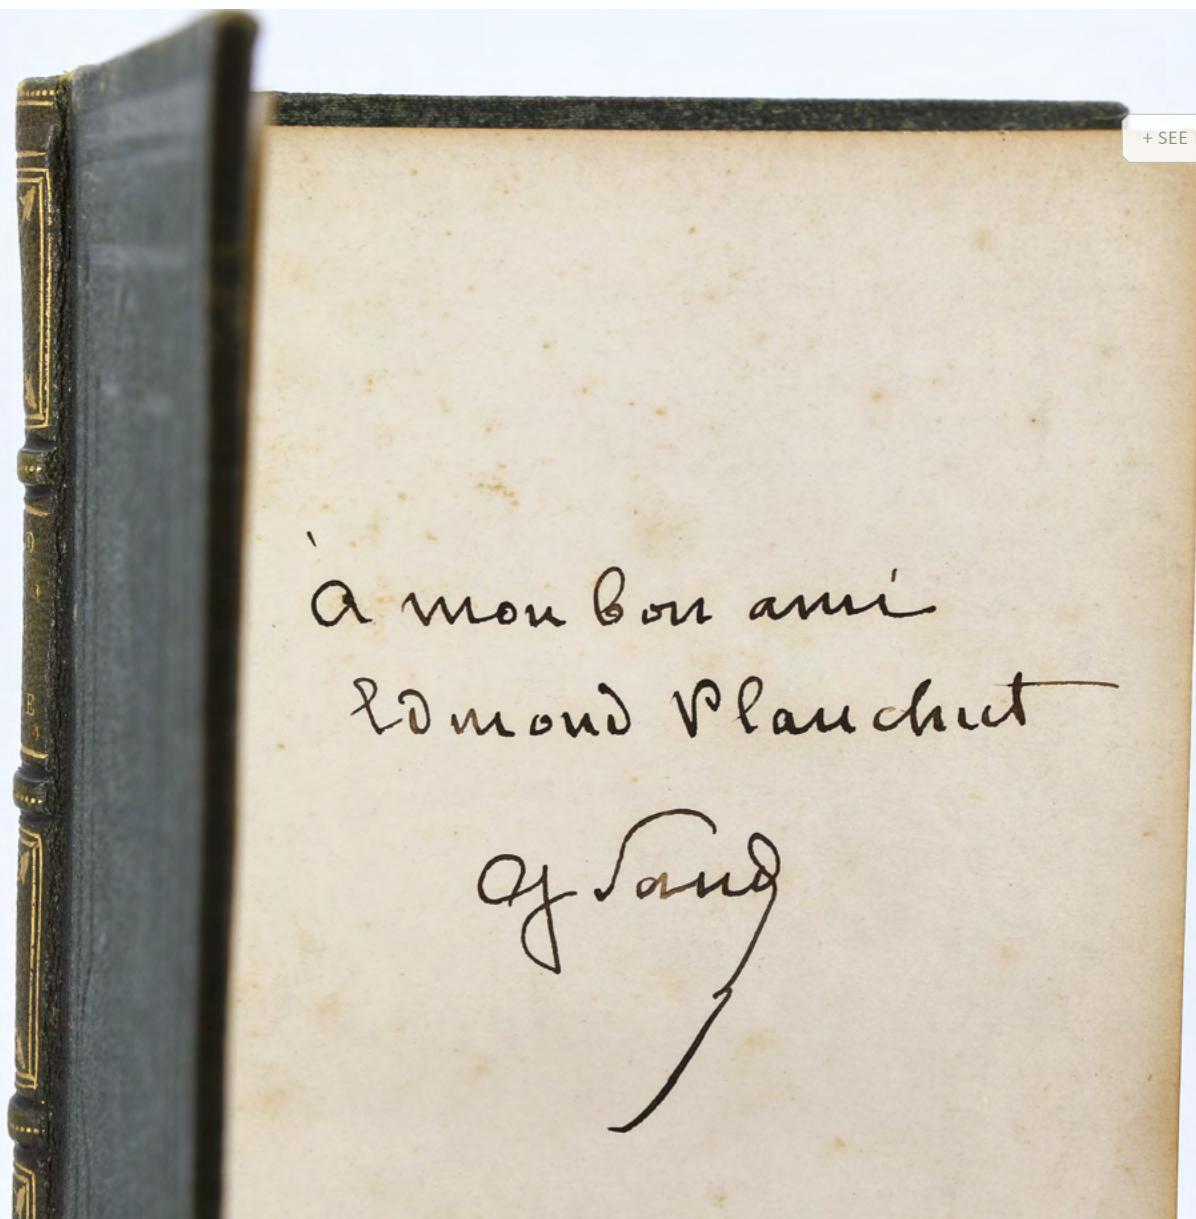 à mon bon ami
Edmond Plauchut
G Sand
+ SEE